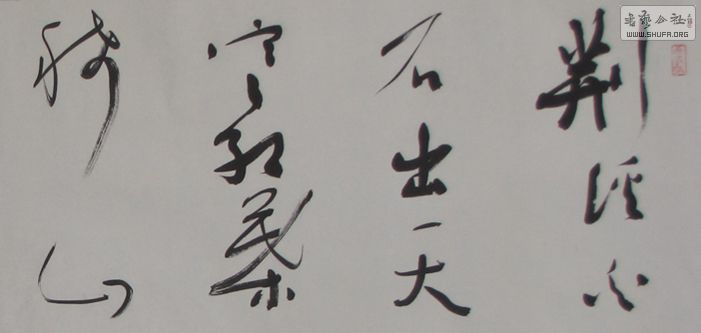 荆溪白
石出天
寒紅葉
稀山
書藝公社
WWW.SHUFA.ORG